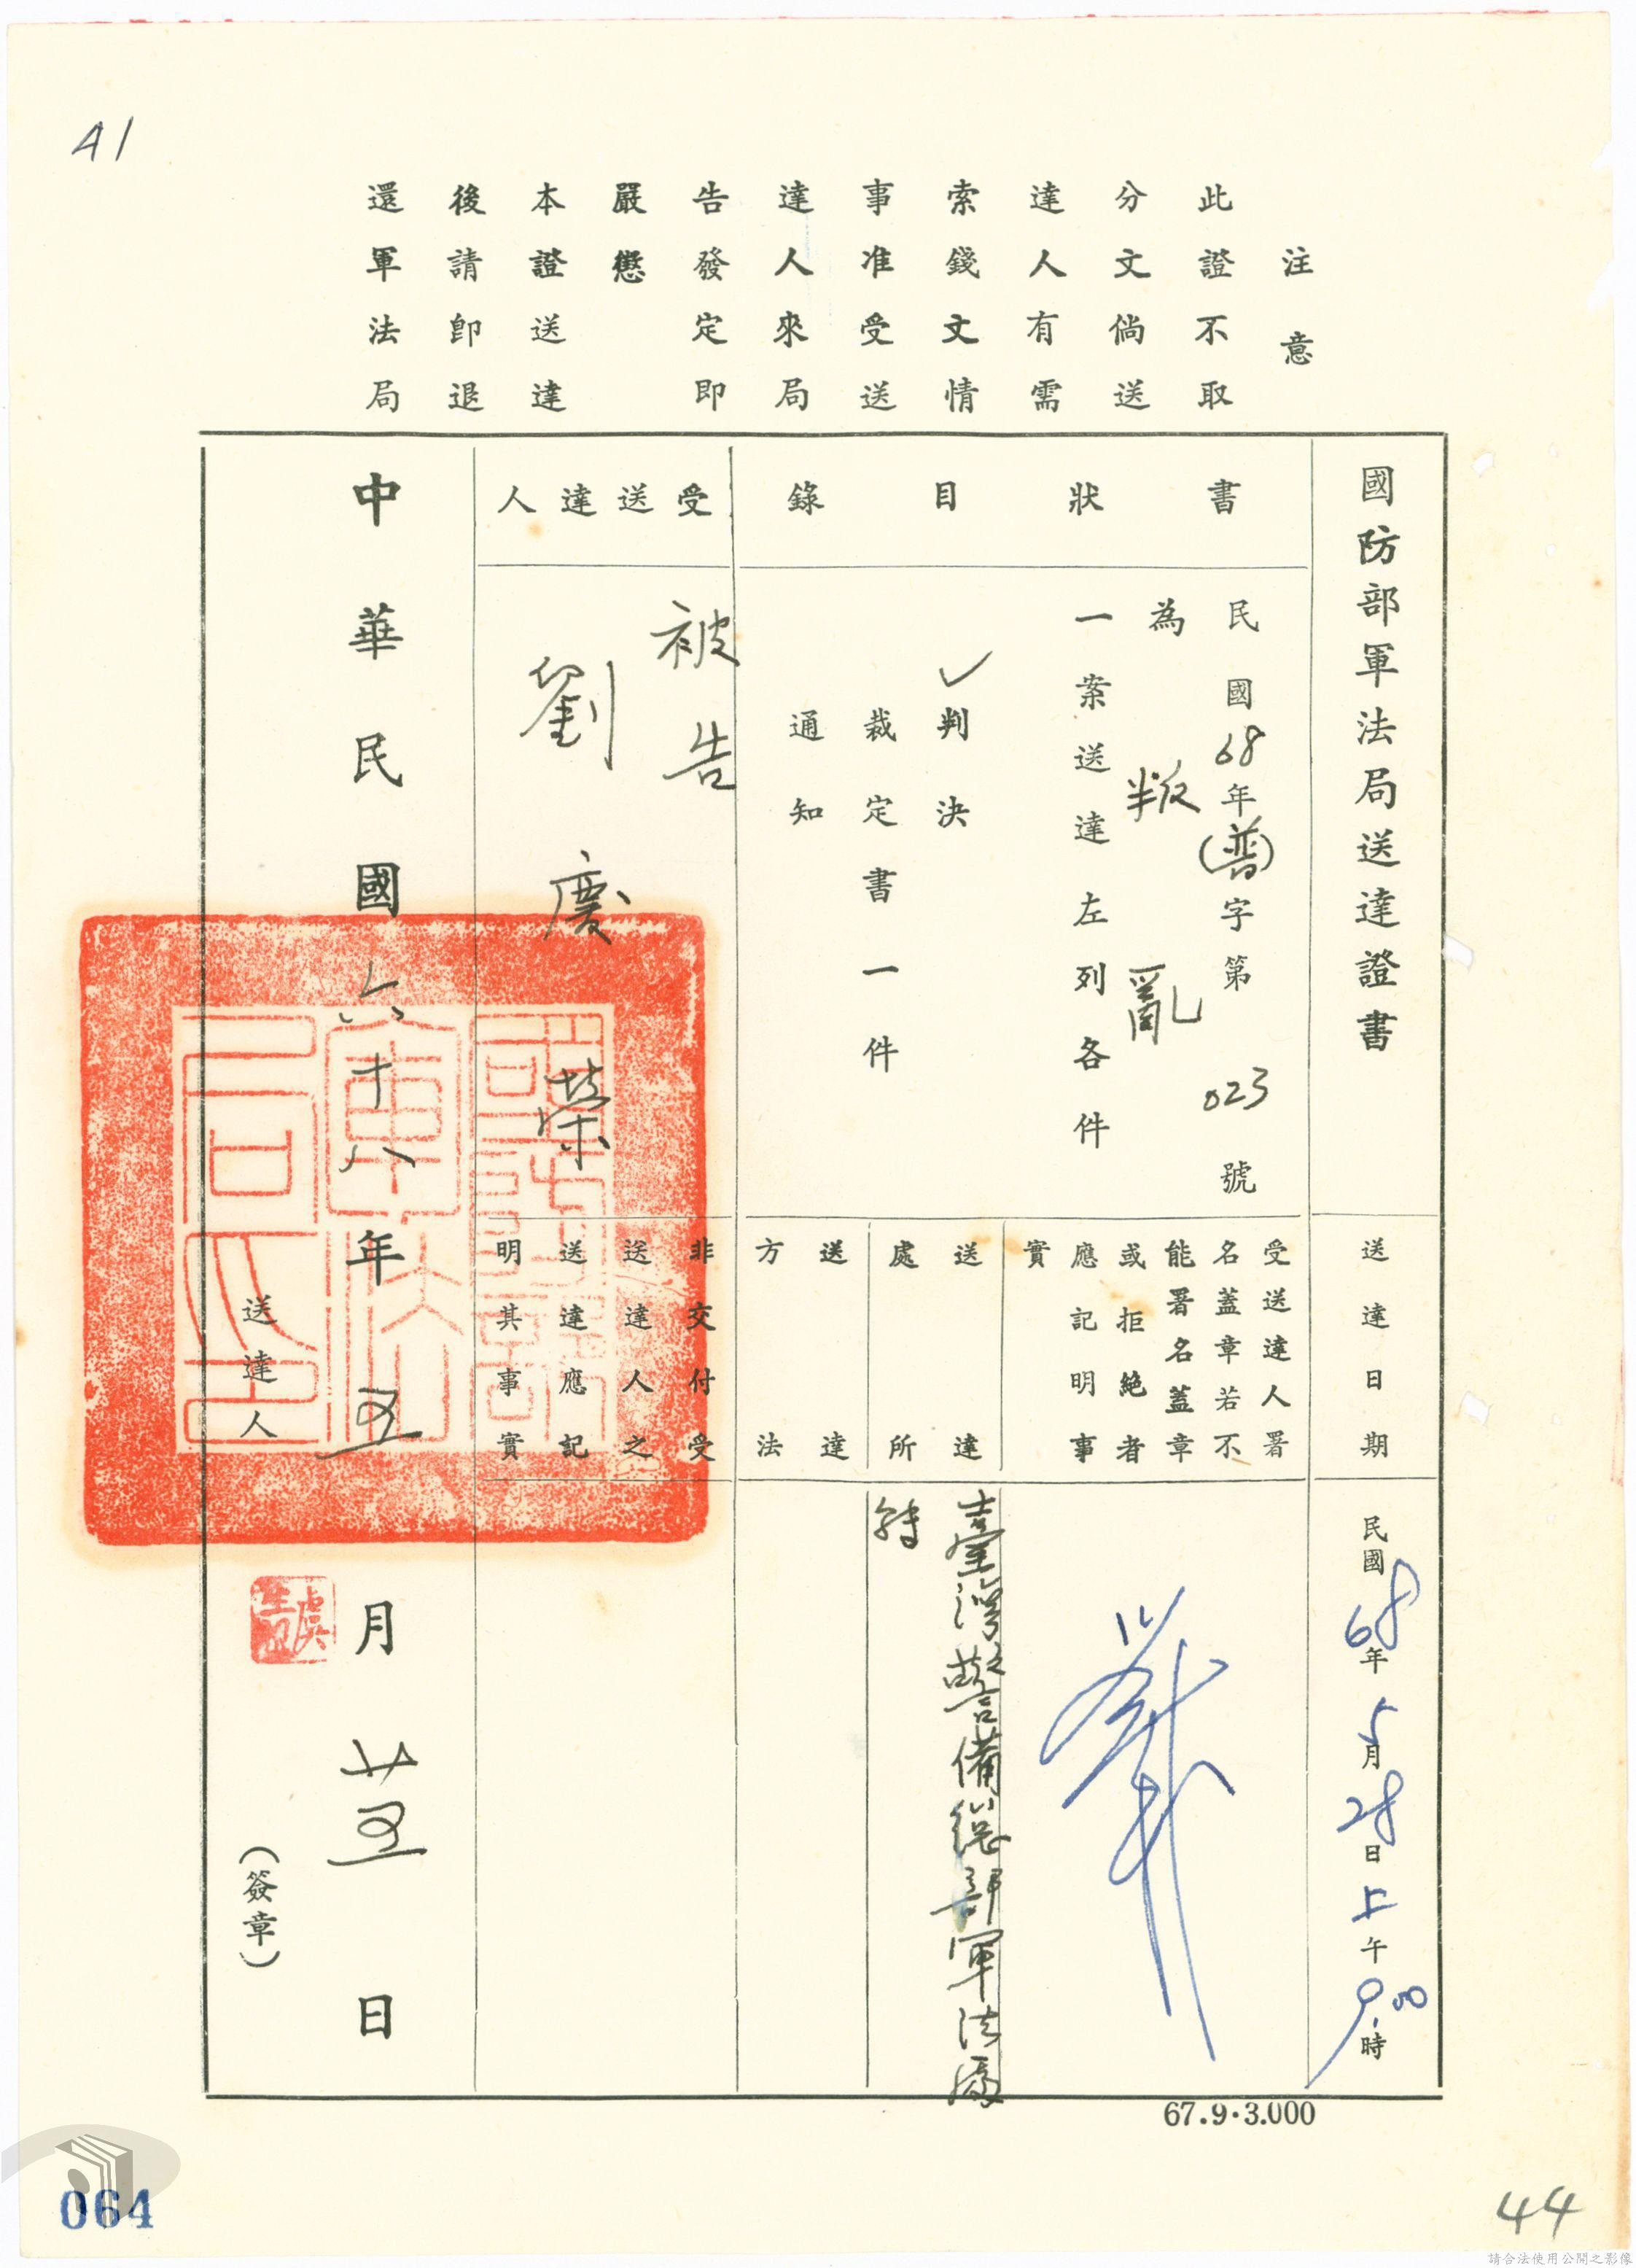 41
注意
此證不取
分文倘送
達人有需
索錢文情
事准受送
達人來局
告發定即
嚴懲
本證送達
後請卽退
還軍法局
國防部軍法局送達證書
送達日期
民國68年5月28日上午9.00時
書狀目錄
民國68年(普)字第023號
為叛亂
一案送達左列各件
✓判決
裁定書一件
通知
受送達人署
名蓋章若不
能署名蓋章
或拒絕者
應記明事
實
送達
處所
臺灣警備總部軍法處
轉
送達
方法
受送達人
被告
劉慶榮
非交付受
送達人之
送達應記
明其事實
中華民國六十八年五月廿五日
國防部
軍法
局之印
送達人
(簽章)
67.9.3.000
064
44
請合法使用公開之影像